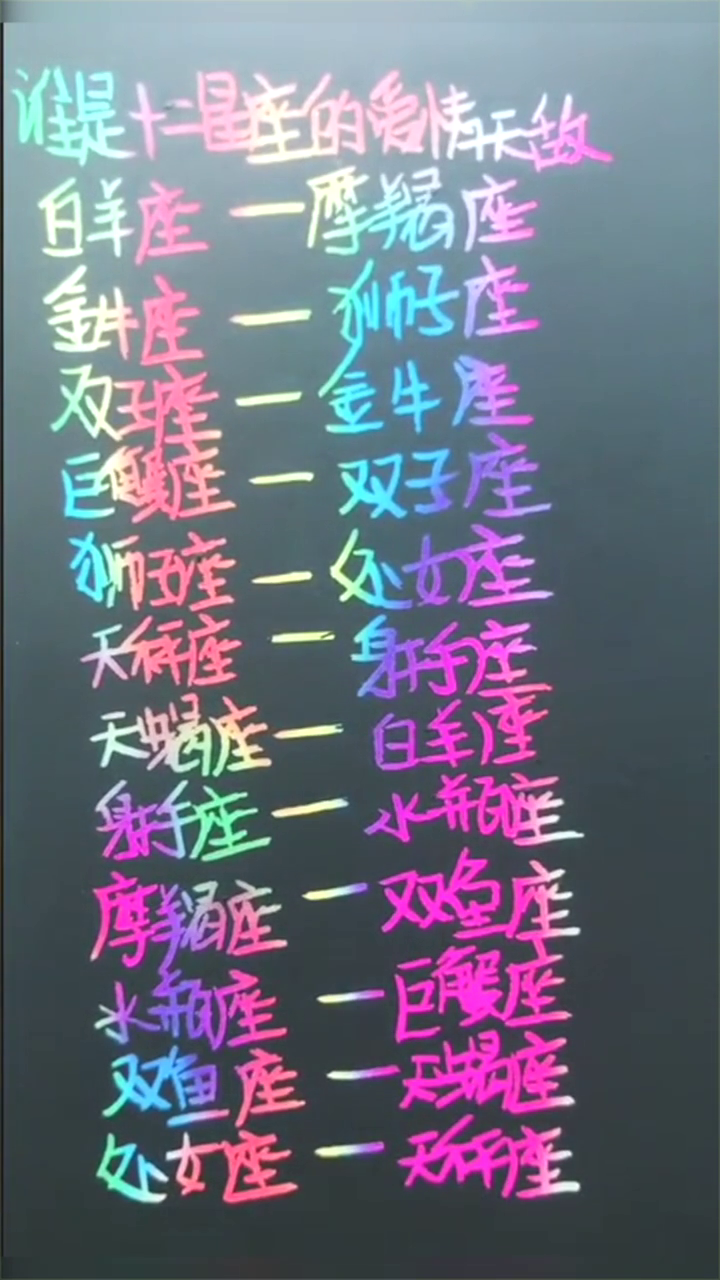 谁是十二星座的爱情天敌
白羊座一摩羯座
金牛座一狮子座
双子座一金牛座
巨蟹座一双子座
狮子座一处女座
天秤座一射手座
天蝎座一白羊座
射手座一水瓶座
摩羯座一双鱼座
水瓶座一巨蟹座
双鱼座一天蝎座
处女座一天秤座